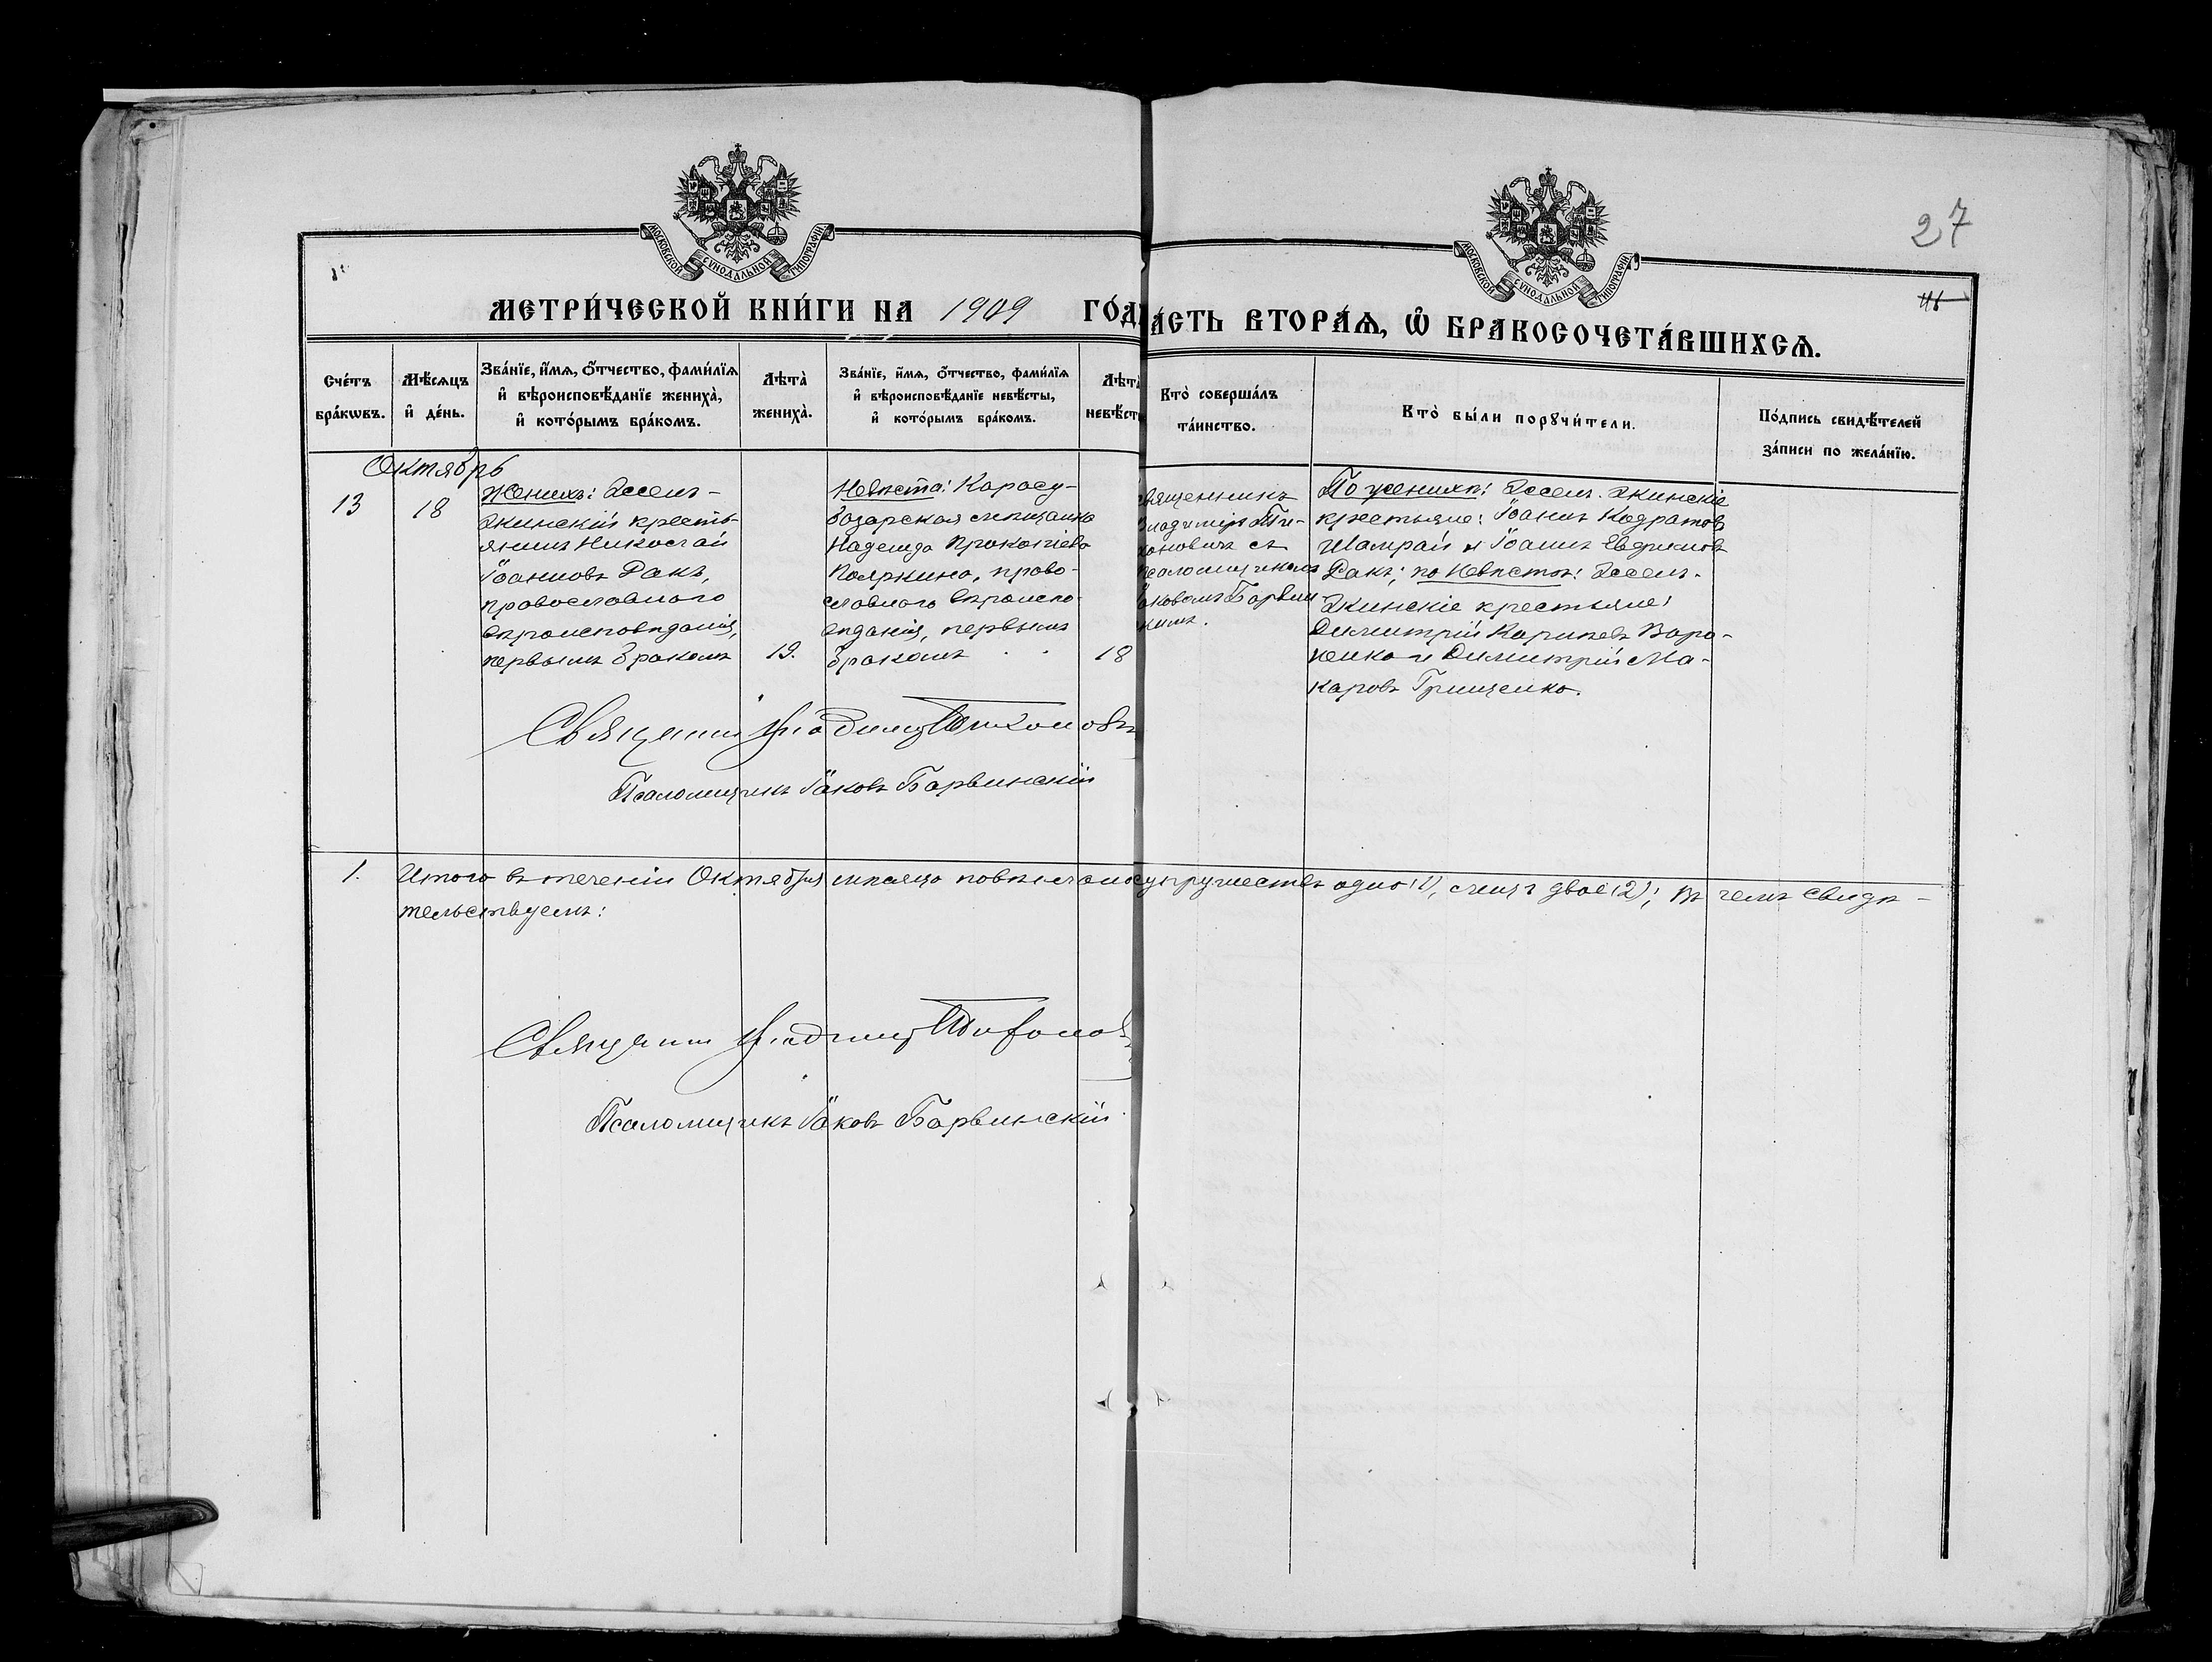 МОСКОВСКОЙ СѴНОДАЛЬНОЙ ТИПОГРАФІИ
МОСКОВСКОЙ СѴНОДАЛЬНОЙ ТИПОГРАФІИ
27
МЕТРИ́ЧЕСКОЙ КНИ́ГИ НА 1909 ГО́Д
А́СТЬ ВТОРА́Ѧ, Ѽ БРАКОСОЧЕТА́ВШИХСѦ.
Сче́тъ
бра́кѡвъ.
Мѣ́сѧцъ
и҆ де́нь.
Зва́нїе, и҆́мѧ, ѻ҆́тчество, фами́лїѧ
и҆ вѣроисповѣ́данїе жениха̀,
и҆ кото́рымъ бра́комъ.
Лѣта̀
жениха̀.
Зва́нїе, и҆́мѧ, ѻ҆́тчество, фами́лїѧ
и҆ вѣроисповѣ́данїе невѣ́сты,
и҆ кото́рымъ бра́комъ.
Лѣта̀
невѣ́ст
Кто̀ соверша́лъ
та́инство.
Кто̀ бы́ли порꙋчи́тели.
По́дпись свидѣ́телей
за́писи по жела́нїю.
Октябрь
13
18
Женихъ: Эссенъ-
Экинскій кресть-
янинъ Николай
Іоанновъ Ракъ,
православнаго
вѣроисповѣданія,
первымъ бракомъ
19.
Невѣста: Карасу-
базарская мѣщанка
Надежда Прокопіева
Пояркина, право-
славнаго вѣроиспо-
вѣданія, первымъ
бракомъ
18
вященникъ
Владиміръ Ти-
хоновичъ съ
псаломщикомъ
Іаковомъ Барвин
кимъ.
По женихѣ: Эссенъ-Экинскіе
крестьяне: Іоаннъ Кодратовъ
Шамрай и Іоаннъ Евфимовъ
Ракъ; по Невѣстѣ: Эссенъ-
Экинскіе крестьяне:
Димитрій Карповъ Варо-
ненко и Димитрій Ма-
каровъ Грищенко.
Священни Владимір Тихонович
Псаломщикъ Іаковъ Барвинскій
1. Итого въ теченіи Октября мѣсяца повѣнчано супружествъ одно (1), лицъ двое (2); въ чемъ свидѣ-
тельствуемъ:
Священни Владимір Тихонов
Псаломщикъ Іаковъ Барвинскій